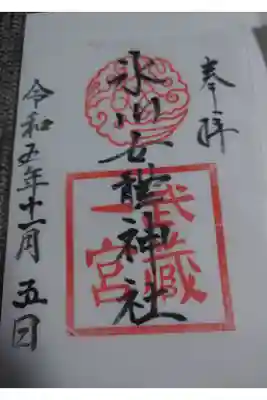 奉拝
氷川女體神社
武藏
一宮
令和五年十一月五日